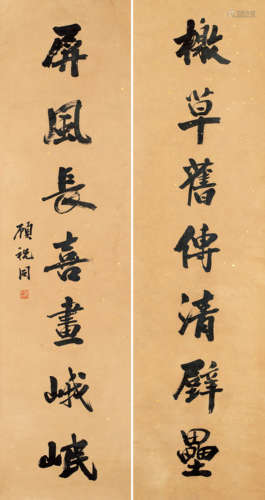 檄草舊傳清壁壘
屏風長喜畫峨岷
顧祝同